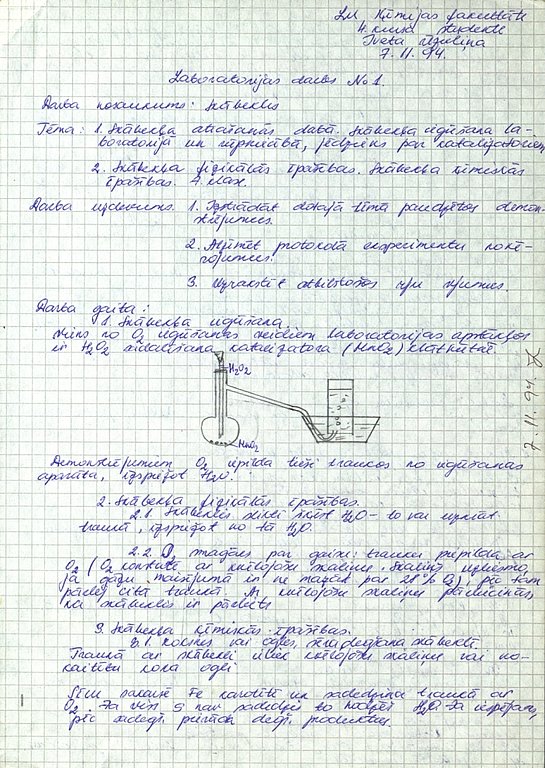 LU Ķīmijas fakultāte
4. kursa studente
Iveta
7.11.94.
Laboratorijas darbs No 1.
Darba nosaukums: Skābeklis
Tēma: 1. Skābekļa atrašanās dabā. Skābekļa iegūšana la-
boratorijā un rūpniecībā, jēdziens par katalizatoriem
2. Skābekļa fizikālās īpašības. Skābekļa ķīmiskās
īpašības. 9. klase.
Darba uzdevums. 1. Izstrādāt dotajā tēmā paredzētos demon-
strējumus.
2. Atzīmēt protokolā eksperimentu novē-
rojumus.
3. Uzrakstīt atbilstošos
Darba gaita:
1. Skābekļa iegūšana.
Viens no O2 iegūšanas veidiem laboratorijas apstākļos
ir H2O2 sadalīšana katalizatora (MnO2) klātbūtnē
H2O2
MnO2
7.11.94.
Demonstrējumiem O2 iepilda tieši traukos no iegūšanas
aparāta, izspiežot H2O.
2. Skābekļa fizikālās īpašības.
2.1. Skābeklis slikti šķīst H2O - to var uzkrāt
traukā, izspiežot no tā H2O.
2.2. O2 smagāks par gaisu: trauku piepilda ar
O2 (O2 konstatē ar kvēlojošu skaliņu. Skaliņš uzliesmo,
ja gāzu maisījumā ir ne mazāk par 28% O2), pēc tam
pārlej citā traukā. Ar kvēlojošu skaliņu pārliecinās,
ka skābeklis ir pārliets
3. Skābekļa ķīmiskās īpašības.
3.1. Koksnes vai ogles sadegšana skābeklī.
Traukā ar skābekli ievieto kvēlojošu skaliņu vai no-
kaitētu koka ogli
Sēru sakarsē Fe karotītē un sadedzina traukā ar
O2. Ja viss S nav sadedzis to nodzēš H2O. Ja
pēc sadegšanas degš. produktus